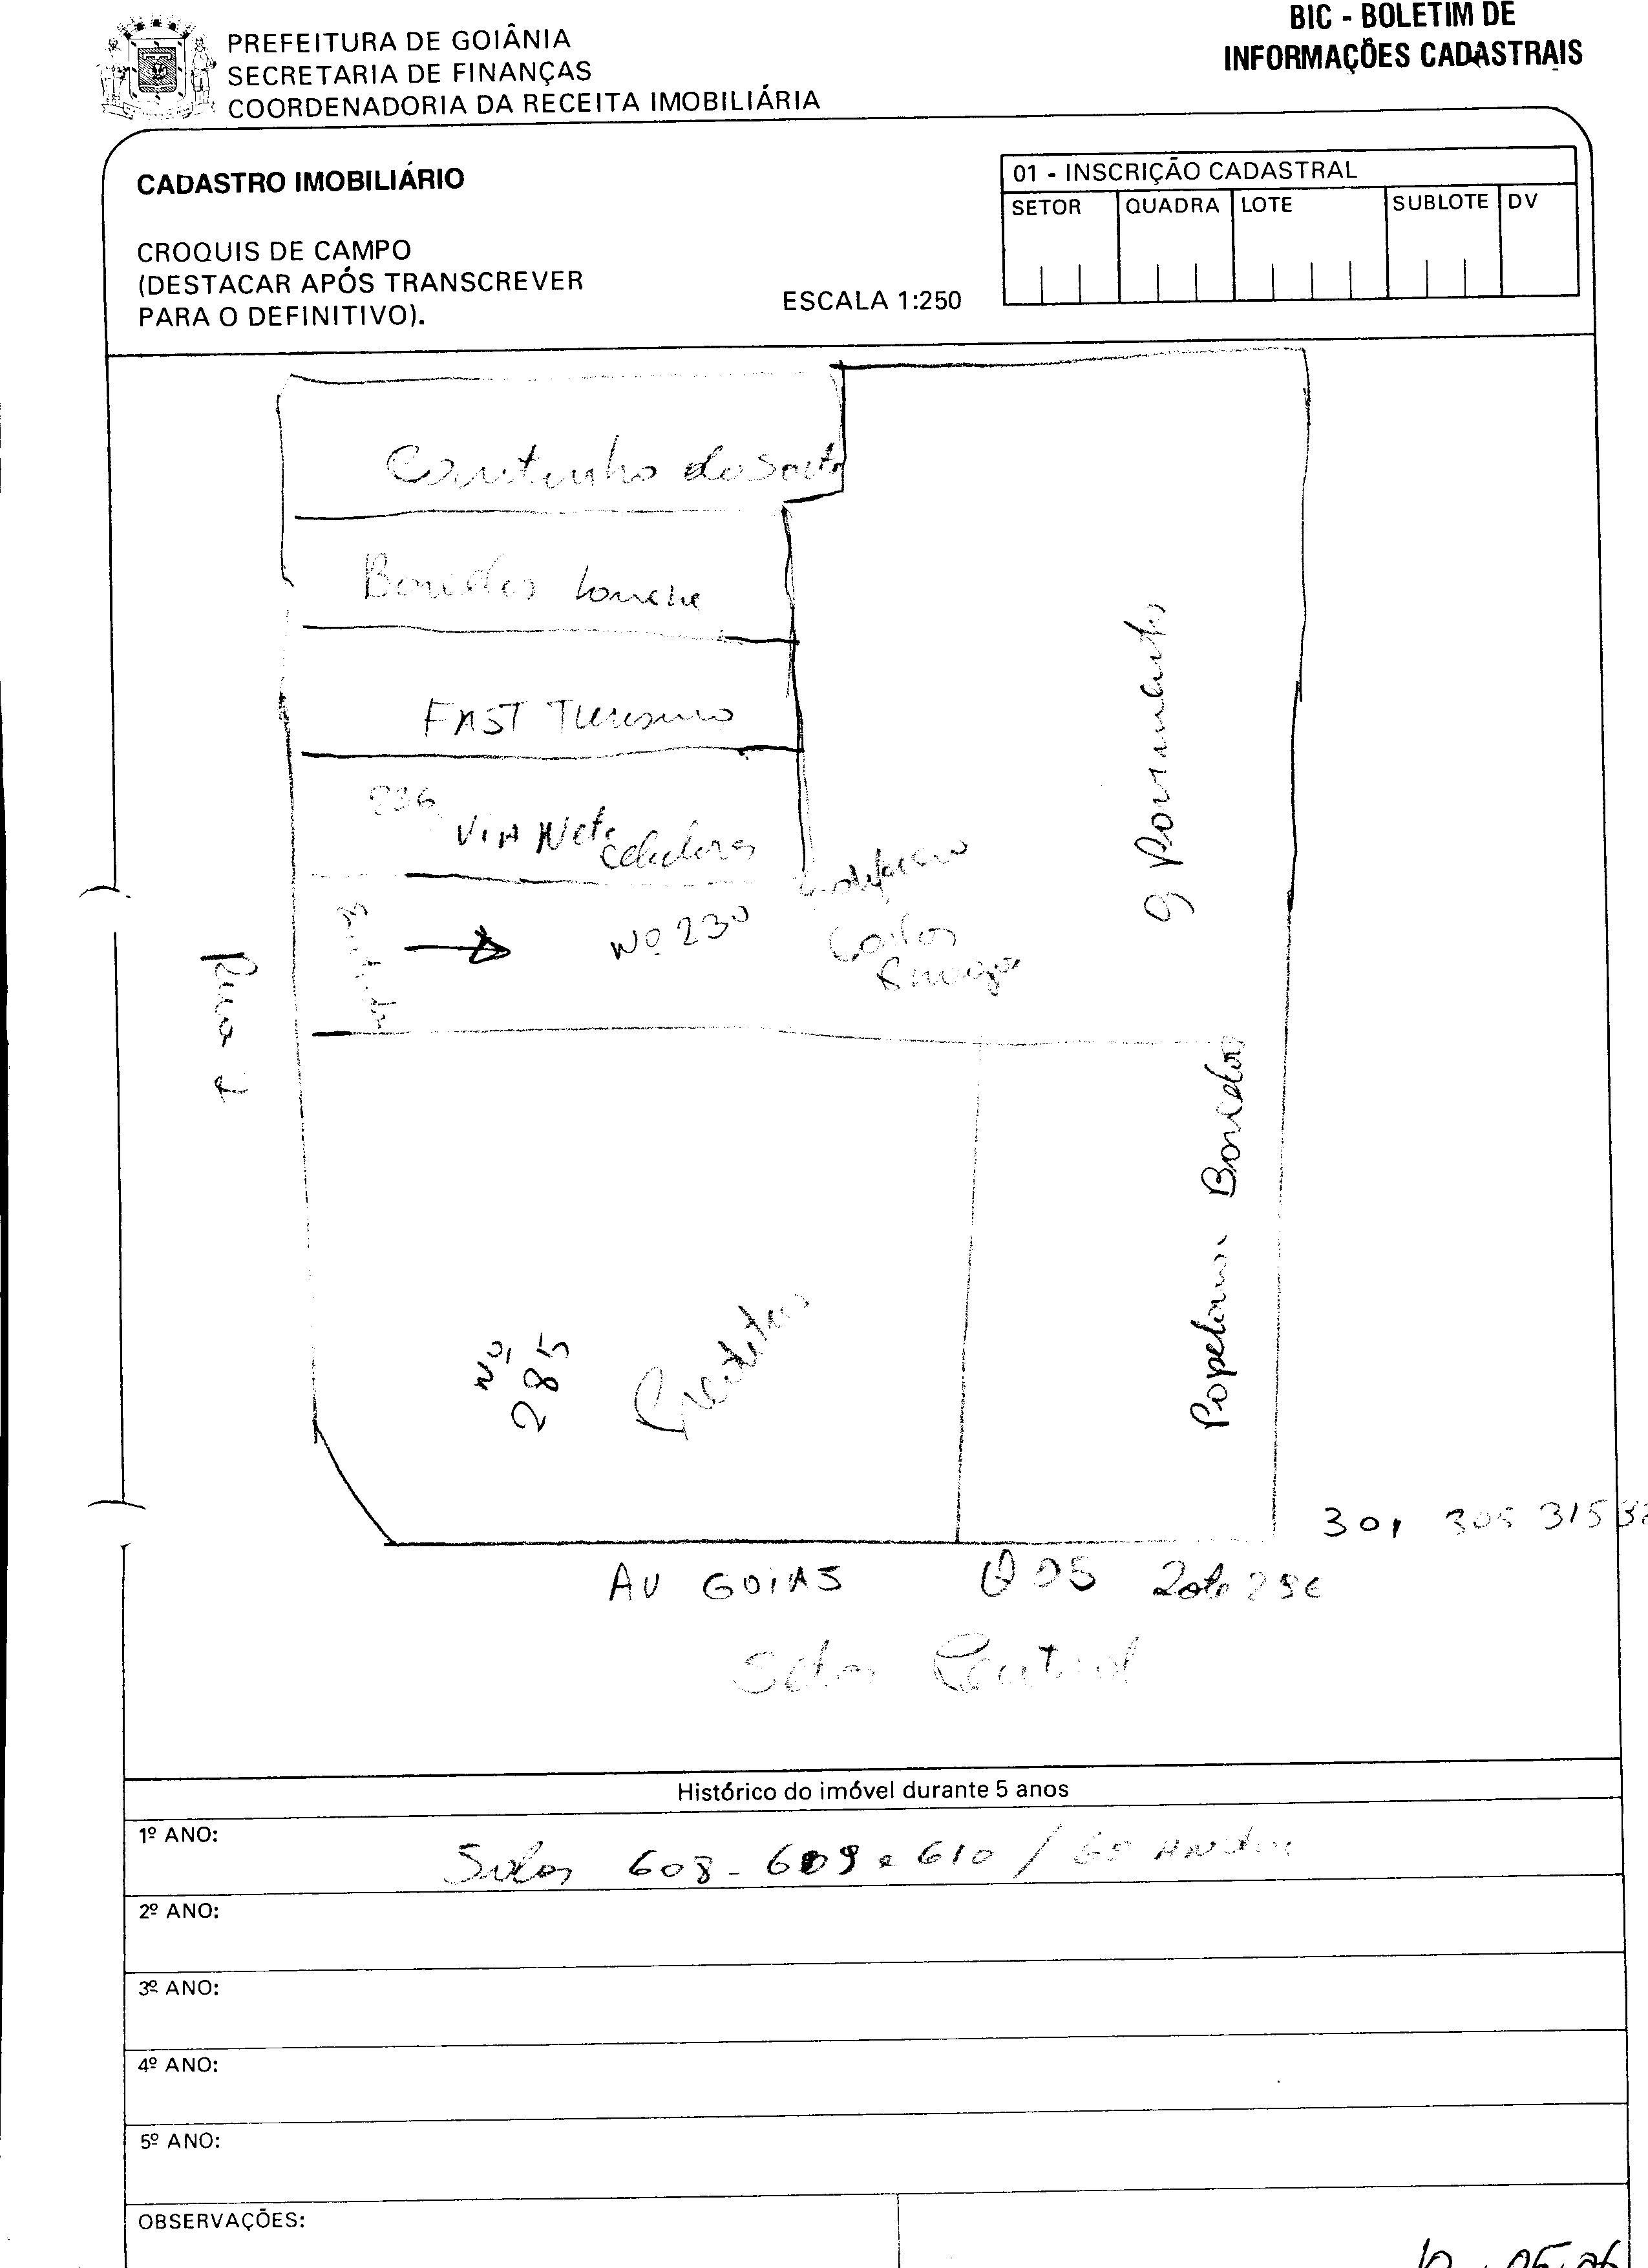 PREFEITURA DE GOIÂNIA
SECRETARIA DE FINANÇAS
COORDENADORIA DA RECEITA IMOBILIÁRIA
BIC - BOLETIM DE
INFORMAÇÕES CADASTRAIS
CADASTRO IMOBILIÁRIO
CROQUIS DE CAMPO
(DESTACAR APÓS TRANSCREVER
PARA O DEFINITIVO).
ESCALA 1:250
01 - INSCRIÇÃO CADASTRAL
SETOR QUADRA LOTE SUBLOTE DV
Cantinho da Sorte
Lanche
FAST Turismo
236
VIA Nete
Celulares
Nº 230
9 Pavimentos
Rua 2
Nº
285
Papelaria
301 305 315
AV GOIAS
Setor Central
Histórico do imóvel durante 5 anos
1º ANO: Salas 608 - 609 e 610 / 6º Andar
2º ANO:
3º ANO:
4º ANO:
5º ANO:
OBSERVAÇÕES: